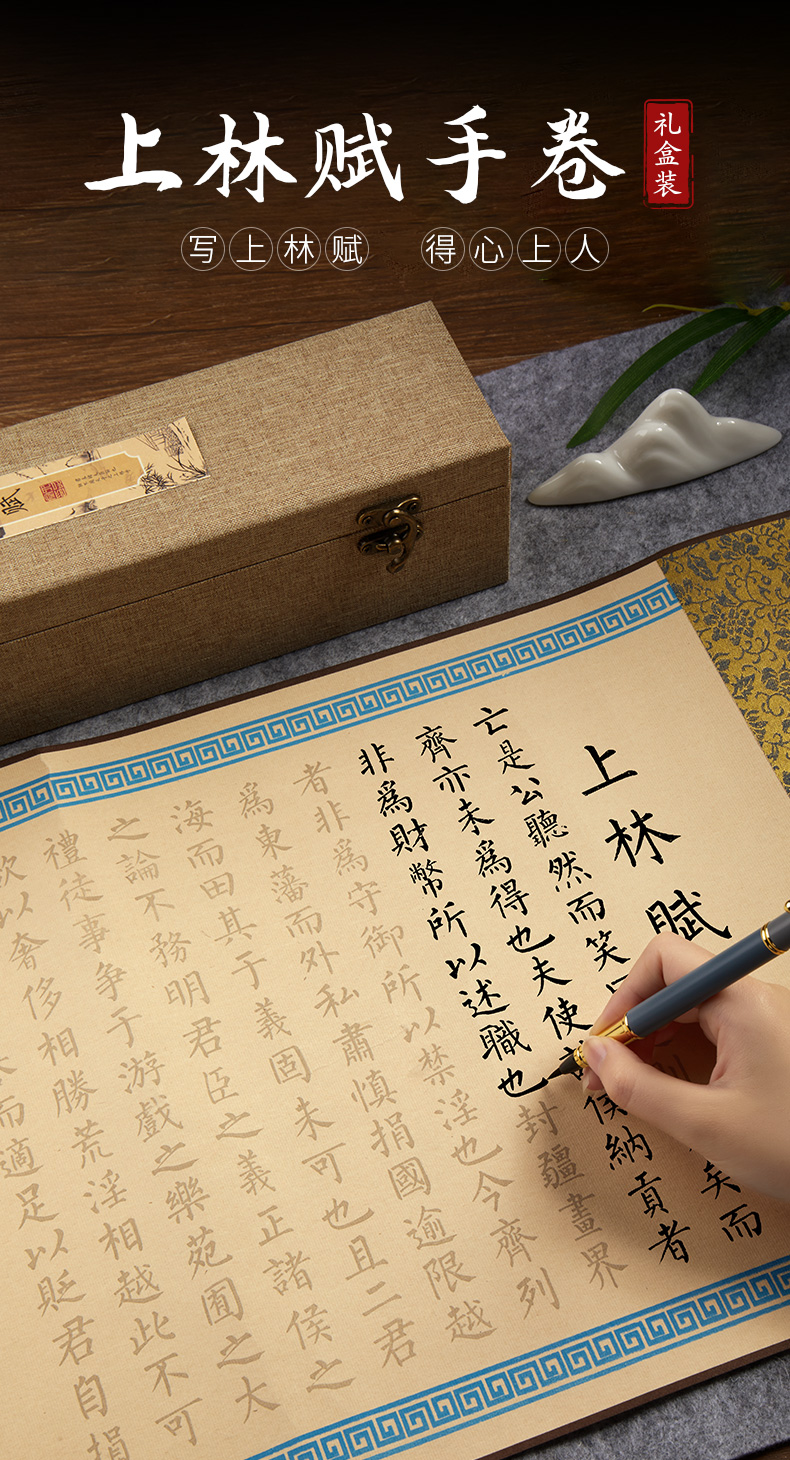 上林赋手卷
礼盒装
写上林赋 得心上人
赋
上林赋
亡是公聽然而笑 矣而
齊亦未為得也夫使 侯納貢者
非為財幣所以述職也封疆畫界
者非為守御所以禁淫也今齊列
為東藩而外私肅慎捐國逾限越
海而田其于義固未可也且二君
之論不務明君臣之義正諸侯之
禮徒事爭于游戲之樂苑囿之太
欲以奢侈相勝荒淫相越此不可
而適足以貶君自損